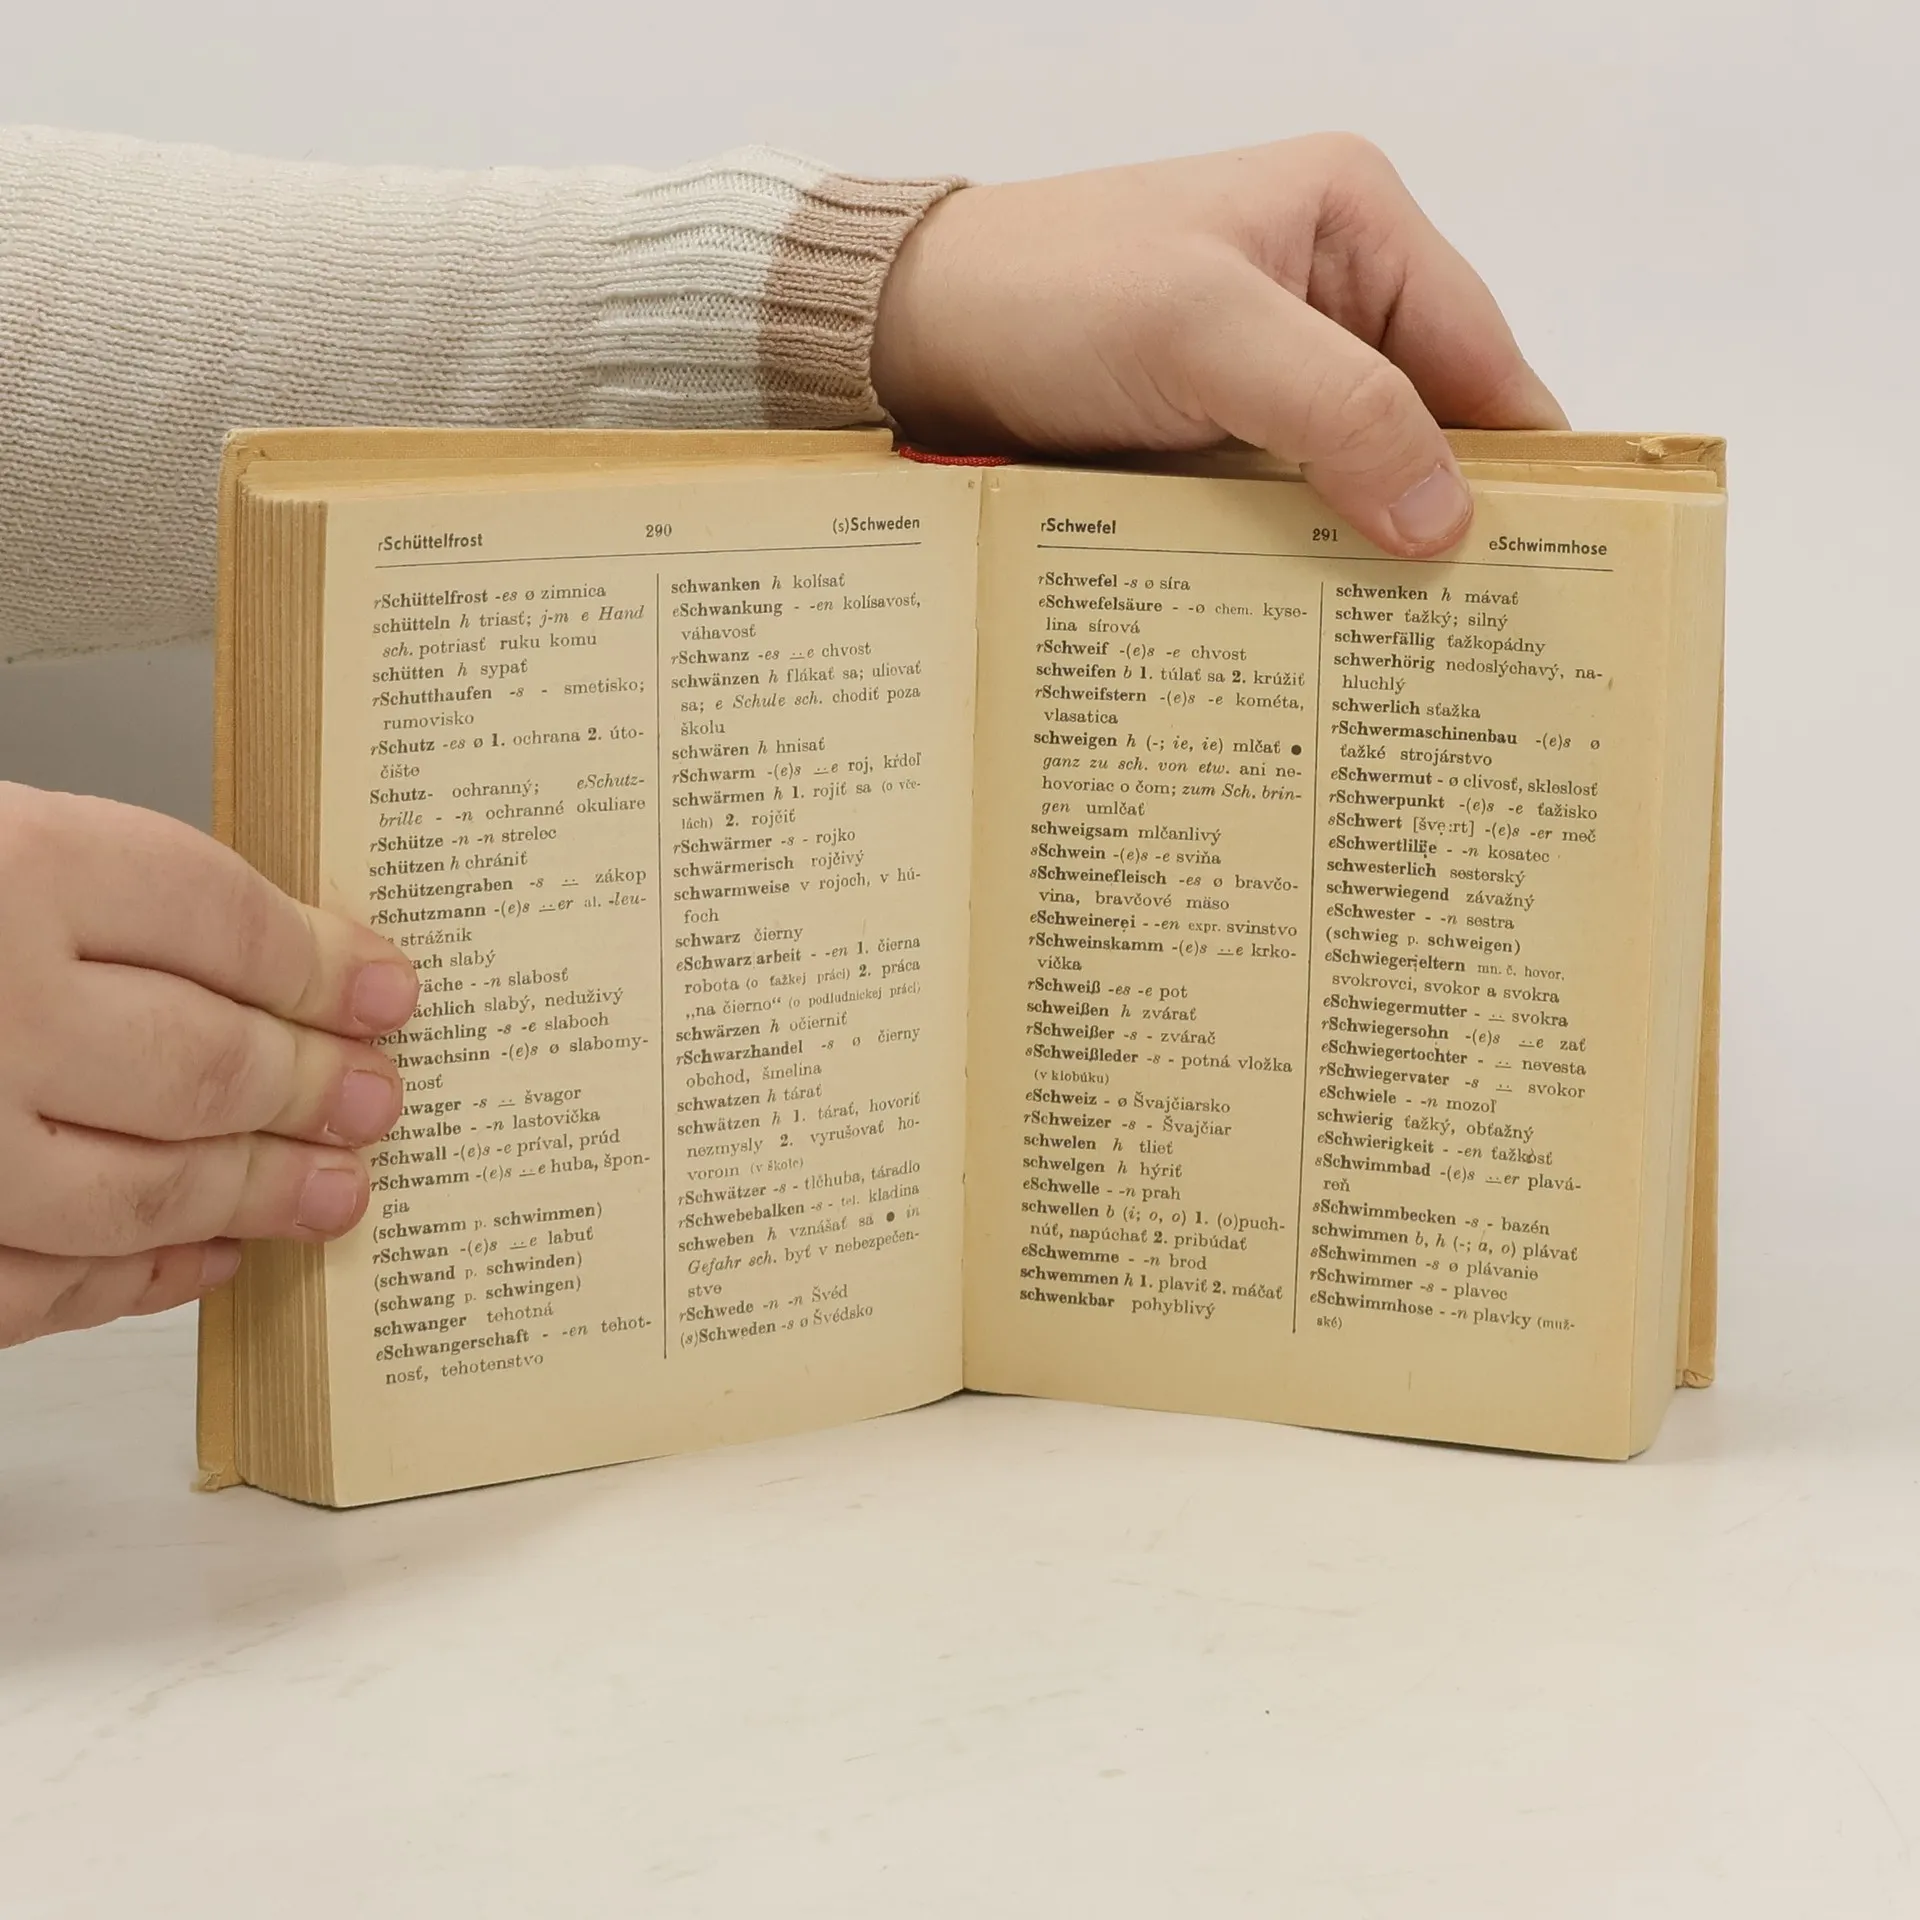 rSchüttelfrost 290 (s)Schweden
rSchüttelfrost -es ø zimnica
schütteln h triasť; j-m e Hand
sch. potriasť ruku komu
schütten h sypať
rSchutthaufen -s - smetisko;
rumovisko
rSchutz -es ø 1. ochrana 2. úto-
čište
Schutz- ochranný; eSchutz-
brille - -n ochranné okuliare
rSchütze -n -n strelec
schützen h chrániť
rSchützengraben -s ¨ zákop
rSchutzmann -(e)s ¨er al. -leu-
strážnik
ach slabý
äche - -n slabosť
ächlich slabý, neduživý
rSchwächling -s -e slaboch
chwachsinn -(e)s ø slabomy-
nosť
hwager -s ¨ švagor
chwalbe - -n lastovička
rSchwall -(e)s -e príval, prúd
rSchwamm -(e)s ¨e huba, špon-
gia
(schwamm p. schwimmen)
rSchwan -(e)s ¨e labuť
(schwand p. schwinden)
(schwang p. schwingen)
schwanger tehotná
eSchwangerschaft - -en tehot-
nosť, tehotenstvo
schwanken h kolísať
eSchwankung - -en kolísavosť,
váhavosť
rSchwanz -es ¨e chvost
schwänzen h flákať sa; ulievať
sa; e Schule sch. chodiť poza
školu
schwären h hnisať
rSchwarm -(e)s ¨e roj, kŕdeľ
schwärmen h 1. rojiť sa (o vče-
lách) 2. rojčiť
rSchwärmer -s - rojko
schwärmerisch rojčivý
schwarmweise v rojoch, v hú-
foch
schwarz čierny
eSchwarzarbeit - -en 1. čierna
robota (o ťažkej práci) 2. práca
„na čierno“ (o podludníckej práci)
schwärzen h očierniť
rSchwarzhandel -s ø čierny
obchod, šmelina
schwatzen h tárať
schwätzen h 1. tárať, hovoriť
nezmysly 2. vyrušovať ho-
vorom (v škole)
rSchwätzer -s - tlčhuba, táradlo
rSchwebebalken -s - tel. kladina
schweben h vznášať sa ● in
Gefahr sch. byť v nebezpečen-
stve
rSchwede -n -n Švéd
(s)Schweden -s ø Švédsko
rSchwefel 291 eSchwimmhose
rSchwefel -s ø síra
eSchwefelsäure - -ø chem. kyse-
lina sírová
rSchweif -(e)s -e chvost
schweifen b 1. túlať sa 2. krúžiť
rSchweifstern -(e)s -e kométa,
vlasatica
schweigen h (-; ie, ie) mlčať ●
ganz zu sch. von etw. ani ne-
hovoriac o čom; zum Sch. brin-
gen umlčať
schweigsam mlčanlivý
sSchwein -(e)s -e sviňa
sSchweinefleisch -es ø bravčo-
vina, bravčové mäso
eSchweinerei - -en expr. svinstvo
rSchweinskamm -(e)s ¨e krko-
vička
rSchweiß -es -e pot
schweißen h zvárať
rSchweißer -s - zvárač
sSchweißleder -s - potná vložka
(v klobúku)
eSchweiz - ø Švajčiarsko
rSchweizer -s - Švajčiar
schwelen h tlieť
schwelgen h hýriť
eSchwelle - -n prah
schwellen b (i; o, o) 1. (o)puch-
núť, napúchať 2. pribúdať
eSchwemme - -n brod
schwemmen h 1. plaviť 2. máčať
schwenkbar pohyblivý
schwenken h mávať
schwer ťažký; silný
schwerfällig ťažkopádny
schwerhörig nedoslýchavý, na-
hluchlý
schwerlich sťažka
rSchwermaschinenbau -(e)s ø
ťažké strojárstvo
eSchwermut - ø clivosť, skleslosť
rSchwerpunkt -(e)s -e ťažisko
sSchwert [šve:rt] -(e)s -er meč
eSchwertlilie - -n kosatec
schwesterlich sesterský
schwerwiegend závažný
eSchwester - -n sestra
(schwieg p. schweigen)
eSchwiegereltern mn. č. hovor.
svokrovci, svokor a svokra
eSchwiegermutter - ¨ svokra
rSchwiegersohn -(e)s ¨e zať
eSchwiegertochter - ¨ nevesta
rSchwiegervater -s ¨ svokor
eSchwiele - -n mozoľ
schwierig ťažký, obťažný
eSchwierigkeit - -en ťažkosť
sSchwimmbad -(e)s ¨er plavá-
reň
sSchwimmbecken -s - bazén
schwimmen b, h (-; a, o) plávať
sSchwimmen -s ø plávanie
rSchwimmer -s - plavec
eSchwimmhose - -n plavky (muž-
ské)